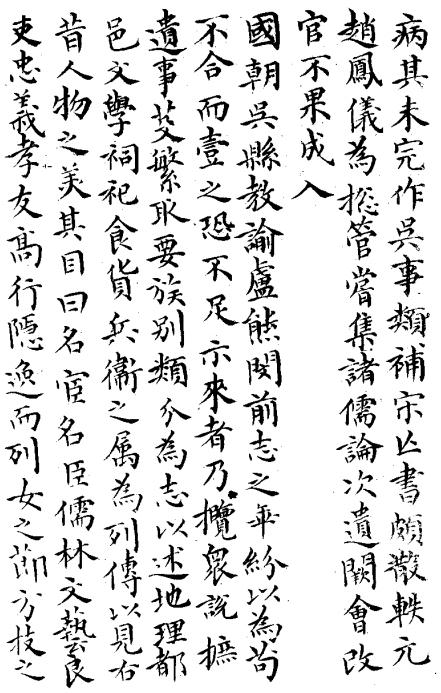 病其未完作吳事類補宋亡書頗散軼元
趙鳳儀為摠管嘗集諸儒論次遺闕會改
官不果成入
國朝吳縣教諭盧熊閔前志之乖紛以為苟
不合而壹之恐不足示來者乃攬衆說摭
遺事芟繁取要族别類分為志以述地理都
邑文學祠祀食貨兵衞之属為列傳以見古
昔人物之美其目曰名宦名臣儒林文藝良
吏忠義孝友高行隱逸而列女之節方技之